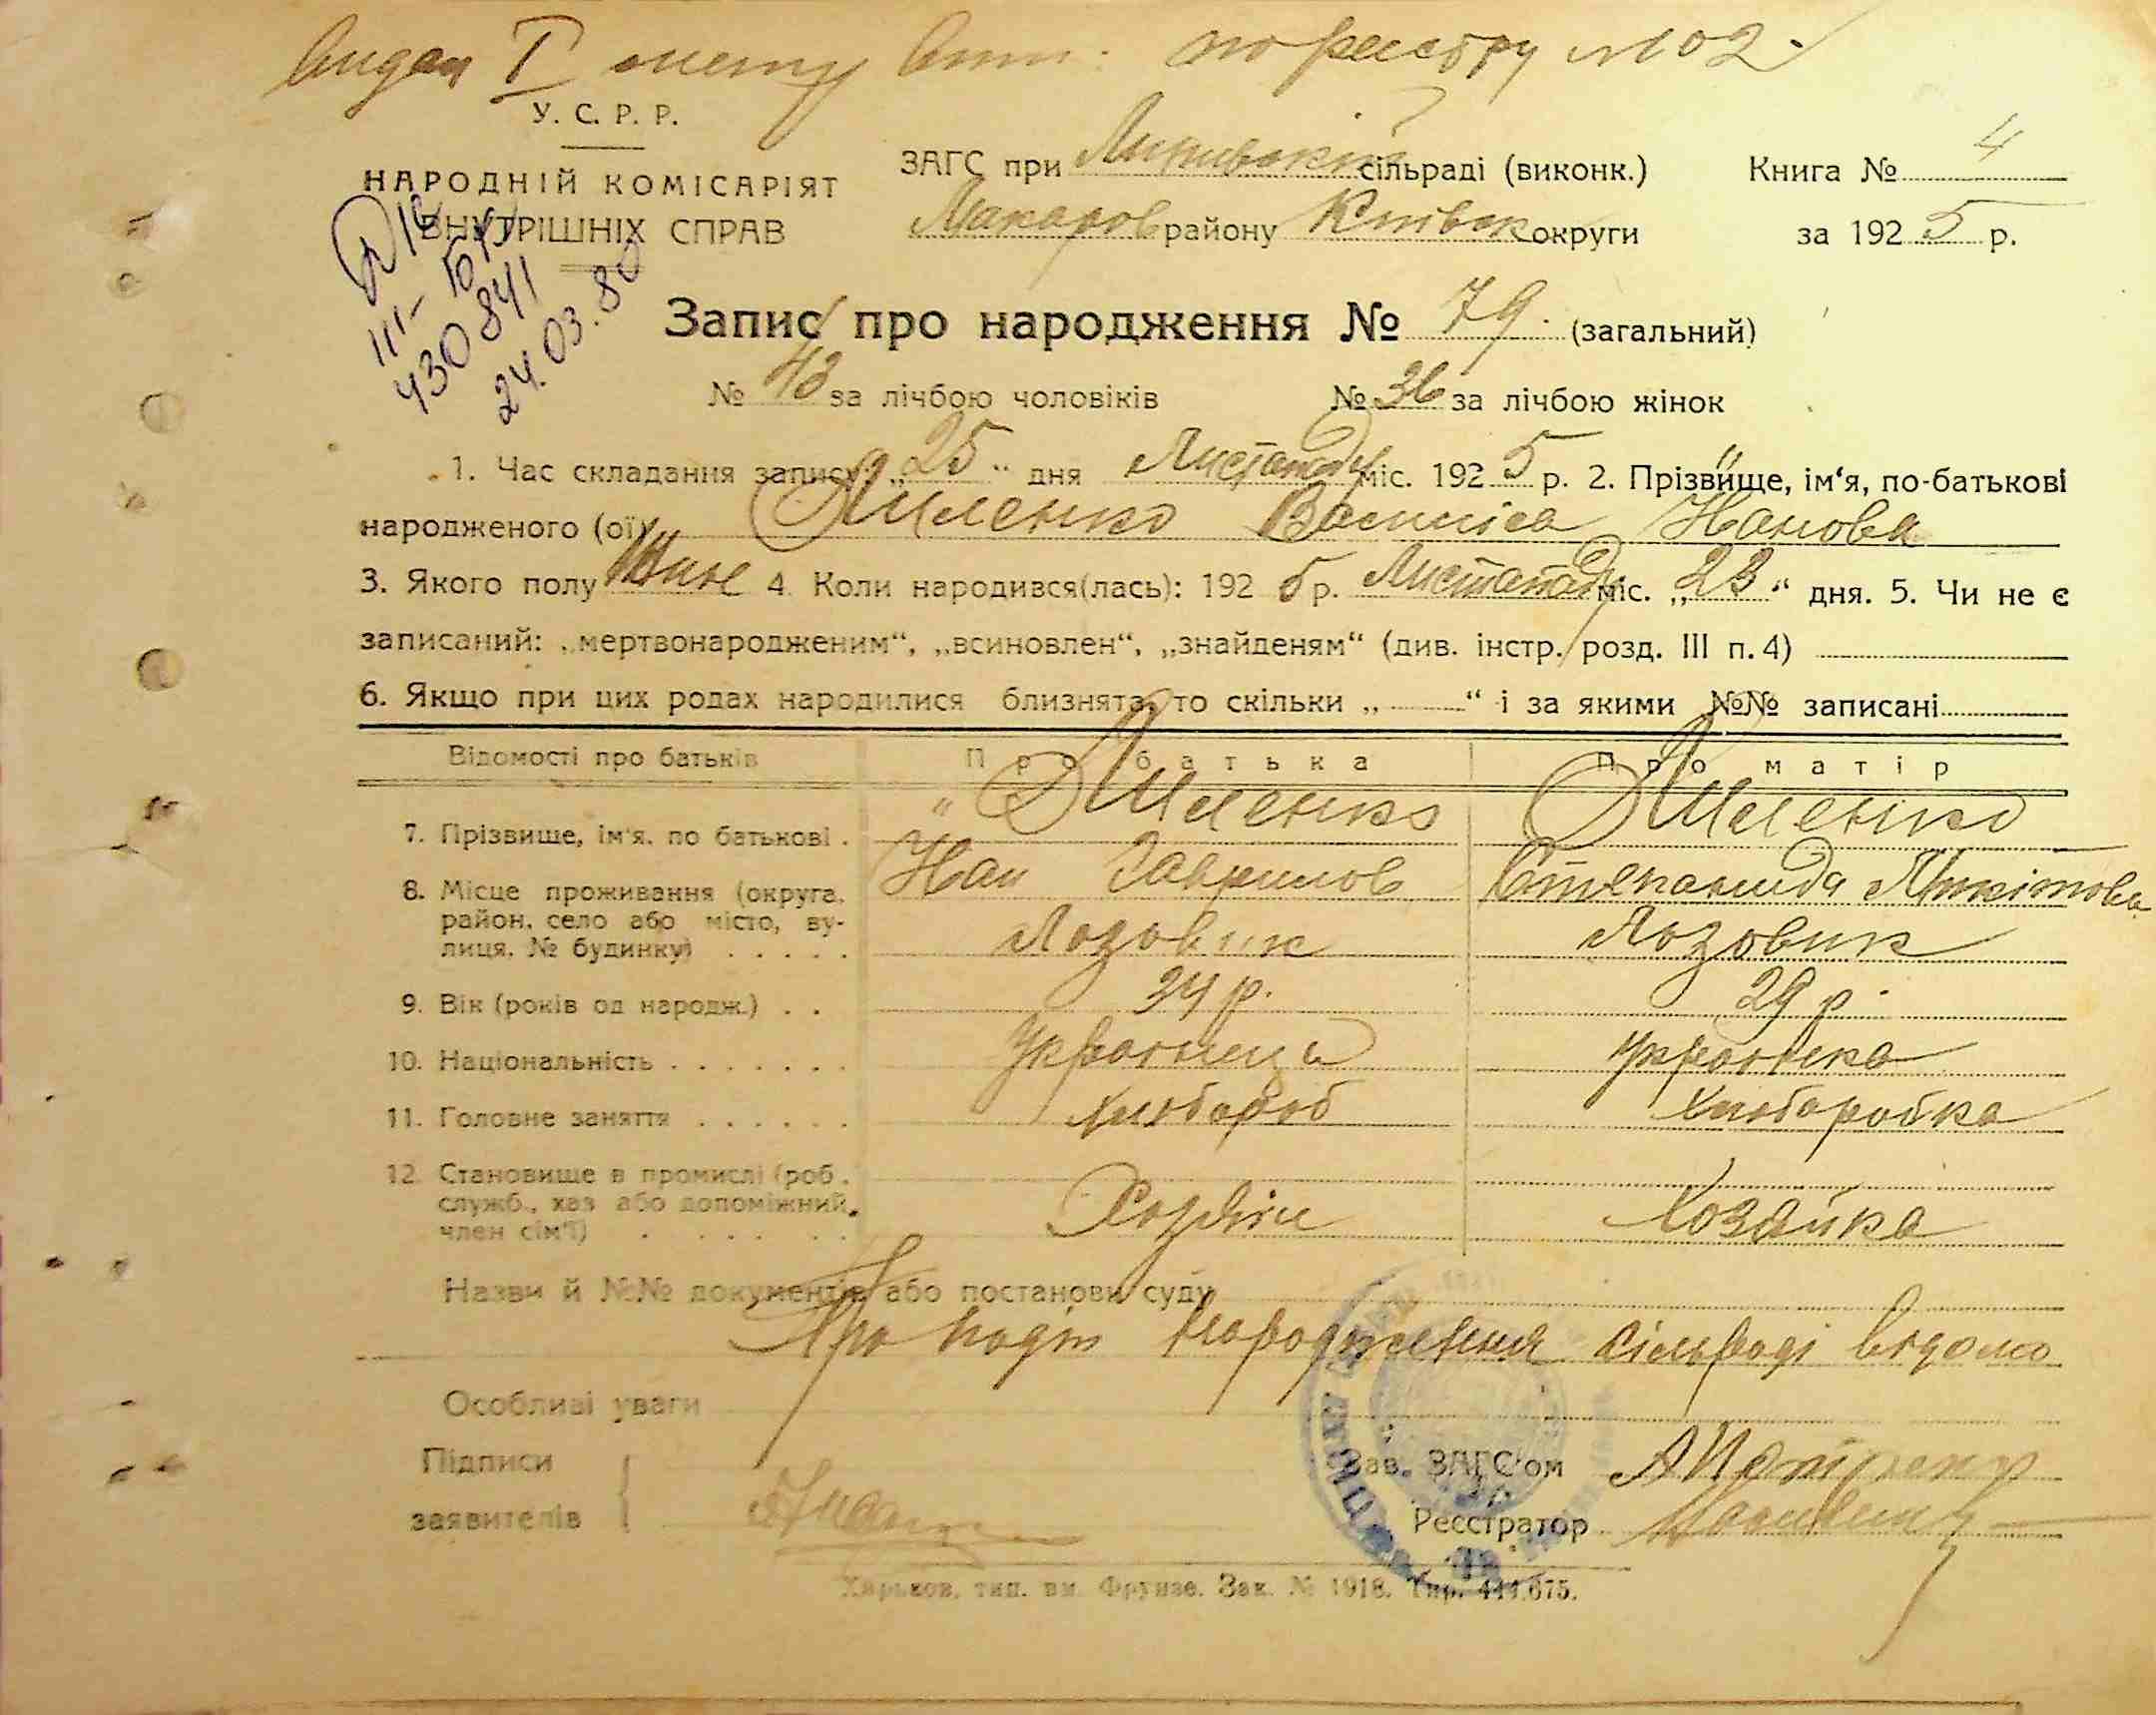 по реєстру №102
У. С. Р. Р.
НАРОДНІЙ КОМІСАРІЯТ
ВНУТРІШНІХ СПРАВ
ЗАГС при Липівській сільраді (виконк.) Книга № 4
Макаров району Київськ округи за 1925 р.
III-
430841
24.03.80
Запис про народження № 79. (загальний)
№ 43 за лічбою чоловіків № 36 за лічбою жінок
1. Час складання запису: „25" дня Листопаду міс. 1925 р. 2. Прізвище, ім'я, по-батькові
народженого (ої) Диленко Василіса Иванова
3. Якого полу Жин 4. Коли народився(лась): 1925 р. Листопаду міс. „23" дня. 5. Чи не є
записаний: „мертвонародженим", „всиновлен", „знайденям" (див. інстр. розд. III п. 4)
6. Якщо при цих родах народилися близнята, то скільки „ " і за якими №№ записані
Відомості про батьків Про батька Про матір
7. Прізвище, ім'я, по батькові . Диленко Диленко
Иван Гаврилов Степанида Микітова
8. Місце проживання (округа, район, село або місто, ву-
лиця, № будинку) . . . . . Лозовик Лозовик
9. Вік (років од народж.) . . 34 р. 29 р.
10. Національність . . . . . . . Українець Українка
11. Головне заняття . . . . . . Хлібороб Хліборобка
12. Становище в промислі (роб.,
служб., хаз. або допоміжний,
член сім'ї) . . . . . . Хозяін Хозяйка
Назви й №№ документів або постанови суду
Про подію народження сільраді відомо
Особливі уваги
Підписи
заявителів
Зав. ЗАГС'ом
Реєстратор
Харьков, тип. им. Фрунзе. Зак. № 1918. Тир. 444.675.